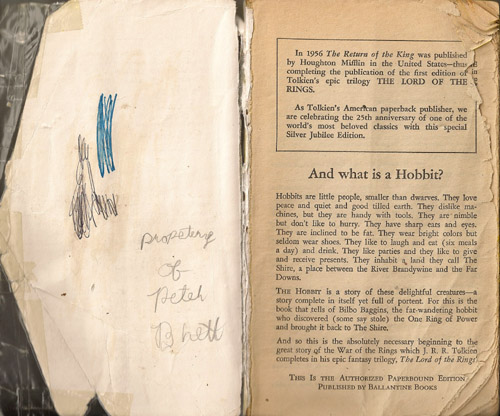 propetery
of
Peter
Bhett
In 1956 The Return of the King was published
by Houghton Mifflin in the United States—thus
completing the publication of the first edition of
Tolkien's epic trilogy THE LORD OF THE
RINGS.
As Tolkien's American paperback publisher, we
are celebrating the 25th anniversary of one of the
world's most beloved classics with this special
Silver Jubilee Edition.
And what is a Hobbit?
Hobbits are little people, smaller than dwarves. They love
peace and quiet and good tilled earth. They dislike ma-
chines, but they are handy with tools. They are nimble
but don't like to hurry. They have sharp ears and eyes.
They are inclined to be fat. They wear bright colors but
seldom wear shoes. They like to laugh and eat (six meals
a day) and drink. They like parties and they like to give
and receive presents. They inhabit a land they call The
Shire, a place between the River Brandywine and the Far
Downs.
THE HOBBIT is a story of these delightful creatures—a
story complete in itself yet full of portent. For this is the
book that tells of Bilbo Baggins, the far-wandering hobbit
who discovered (some say stole) the One Ring of Power
and brought it back to The Shire.
And so this is the absolutely necessary beginning to the
great story of the War of the Rings which J. R. R. Tolkien
completes in his epic fantasy trilogy, The Lord of the Rings
THIS IS THE AUTHORIZED PAPERBOUND EDITION
PUBLISHED BY BALLANTINE BOOKS